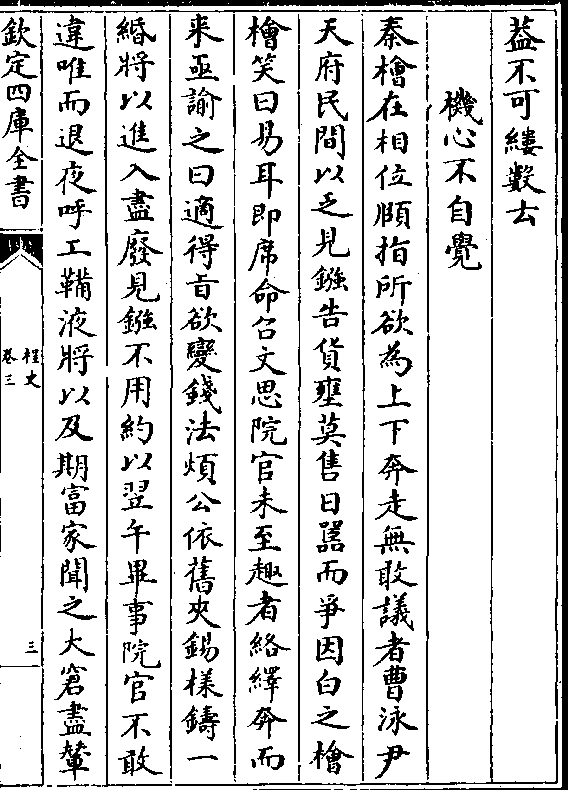 葢不可縷數云
機心不自覺
秦檜在相位頤指所欲為上下奔走無敢議者曹泳尹
天府民間以乏見鏹告貨壅莫售日嚚而爭因白之檜
檜笑曰易耳即席命召文思院官未至趣者絡繹奔而
来亟諭之曰適得㫖欲變錢法煩公依舊夾錫様鑄一
緡將以進入盡廢見鏹不用約以翌午畢事院官不敢
違唯而退夜呼工鞴液將以及期富家聞之大窘盡輦
欽定四庫全書
桯史
卷三
三